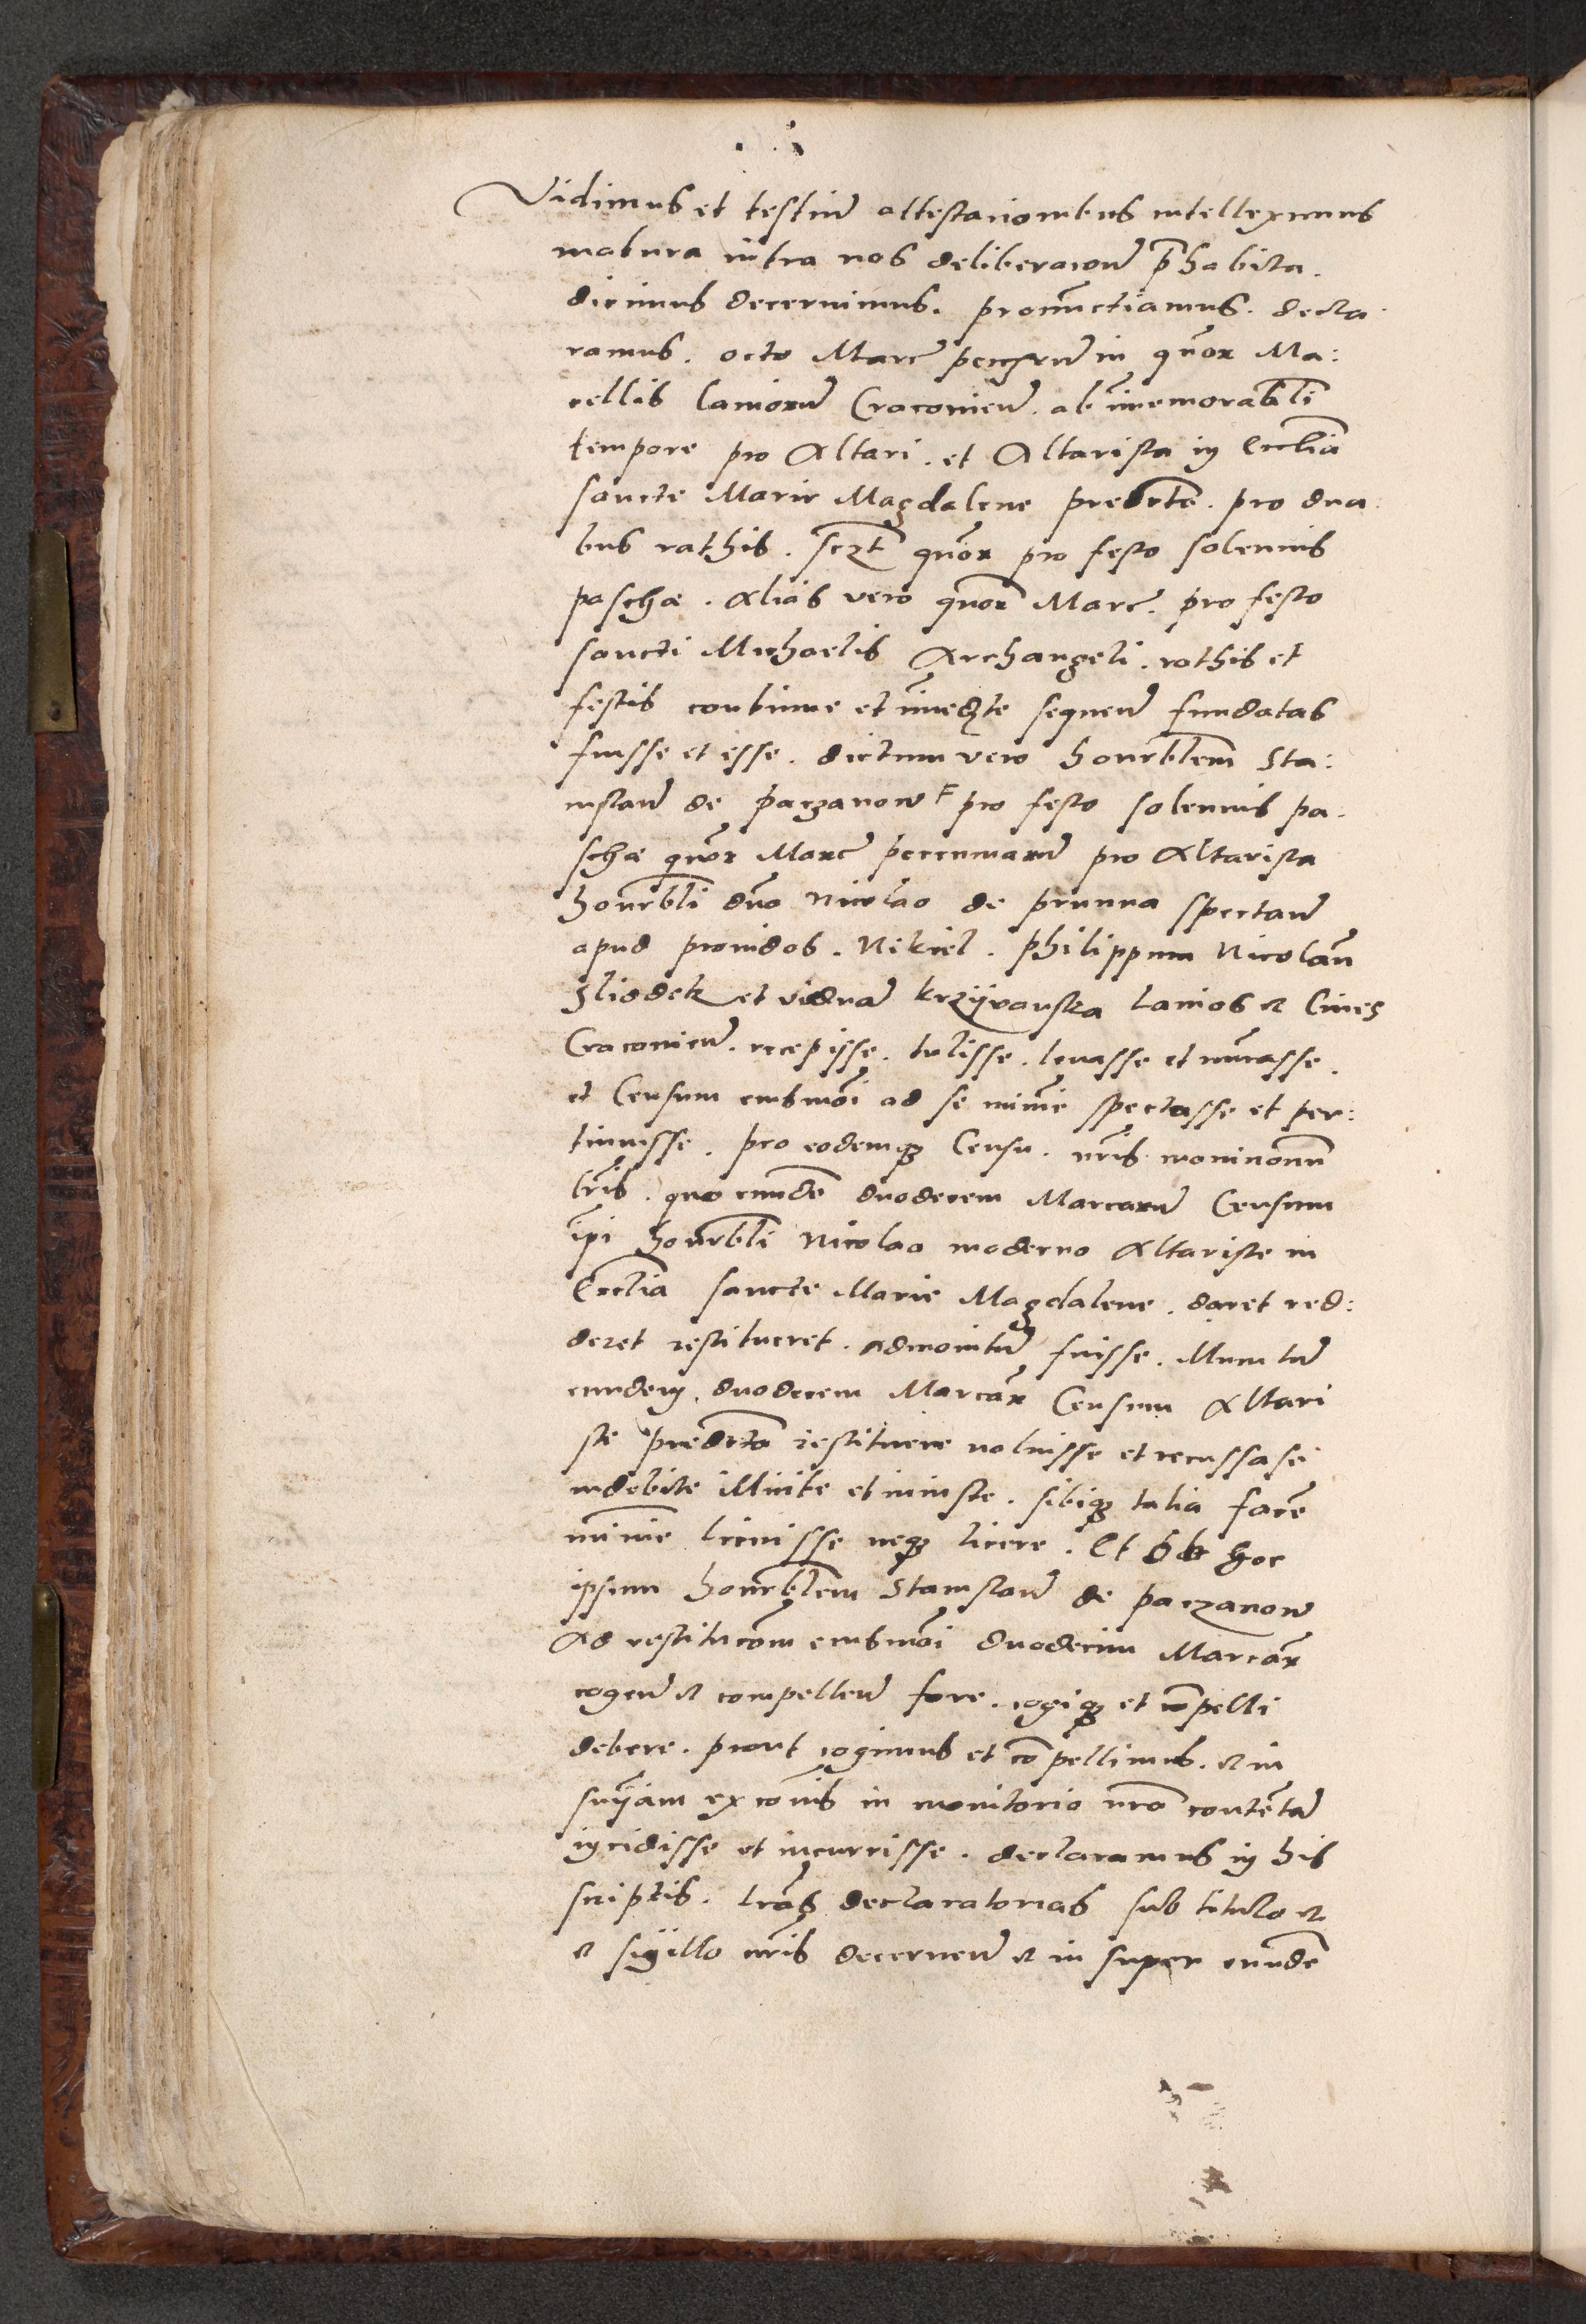 Vidimus et testium attestacionibus intelleximus
matura intra nos deliberacion p̄habita.
dicimus decernimus. pronunctiamus. decla
ramus. octo Marc in quor Ma:
cellis laniorum Cracovien. ab immemorabili
tempore pro Altari. et Altarista in Ecclia
sancte Marie Magdalene predicte. pro dua
bus rathis. sczt quor pro festo solennis
paschæ. Alias vero quor Marc. pro festo
sancti Michaelis Archangeli. rathis et
festis continue et immedte sequen fundatas
fuisse et esse. dictum vero honrblem Sta:
nislaum de paczanow pro festo solennis pa.
schæ quor Marc pecuniarum pro Altarista
honrbli dno Nicolao de prunna spectan
apud providos. Nikiel. philippum Nicolaum
et viduam lanios et Cives
Cracovien. recepisse. tulisse. levasse et
et Censum eiusmoi ad se minime spectasse et per:
tinuisse. pro eodemque Censu. nris
lris. quo eundem duodecem Marcarum Censum
ipi honrbli Nicolao moderno Altariste in
Ecclia sancte Marie Magdalene. daret red:
deret restitueret. admonitum fuisse.
eundem. duodecem Marcar Censum Altari
ste predicto restituere noluisse et recussase
indebite illicite et iniuste. sibique talia facere
minime licuisse neque licere. Et ob hoc
ipsum honrblem Stanislaum de paczanow
Ad restitucom eiusmoi duodecim Marcar
cogen et compellen fore. cogique et compelli
debere. prout cogimus et compellimus. et in
snijam excois in monitorio nro contentam
incidisse et incurrisse. declaramus in his
scriptis. lras declaratorias sub titulo et
et sigillo nris decernen et in super eundem